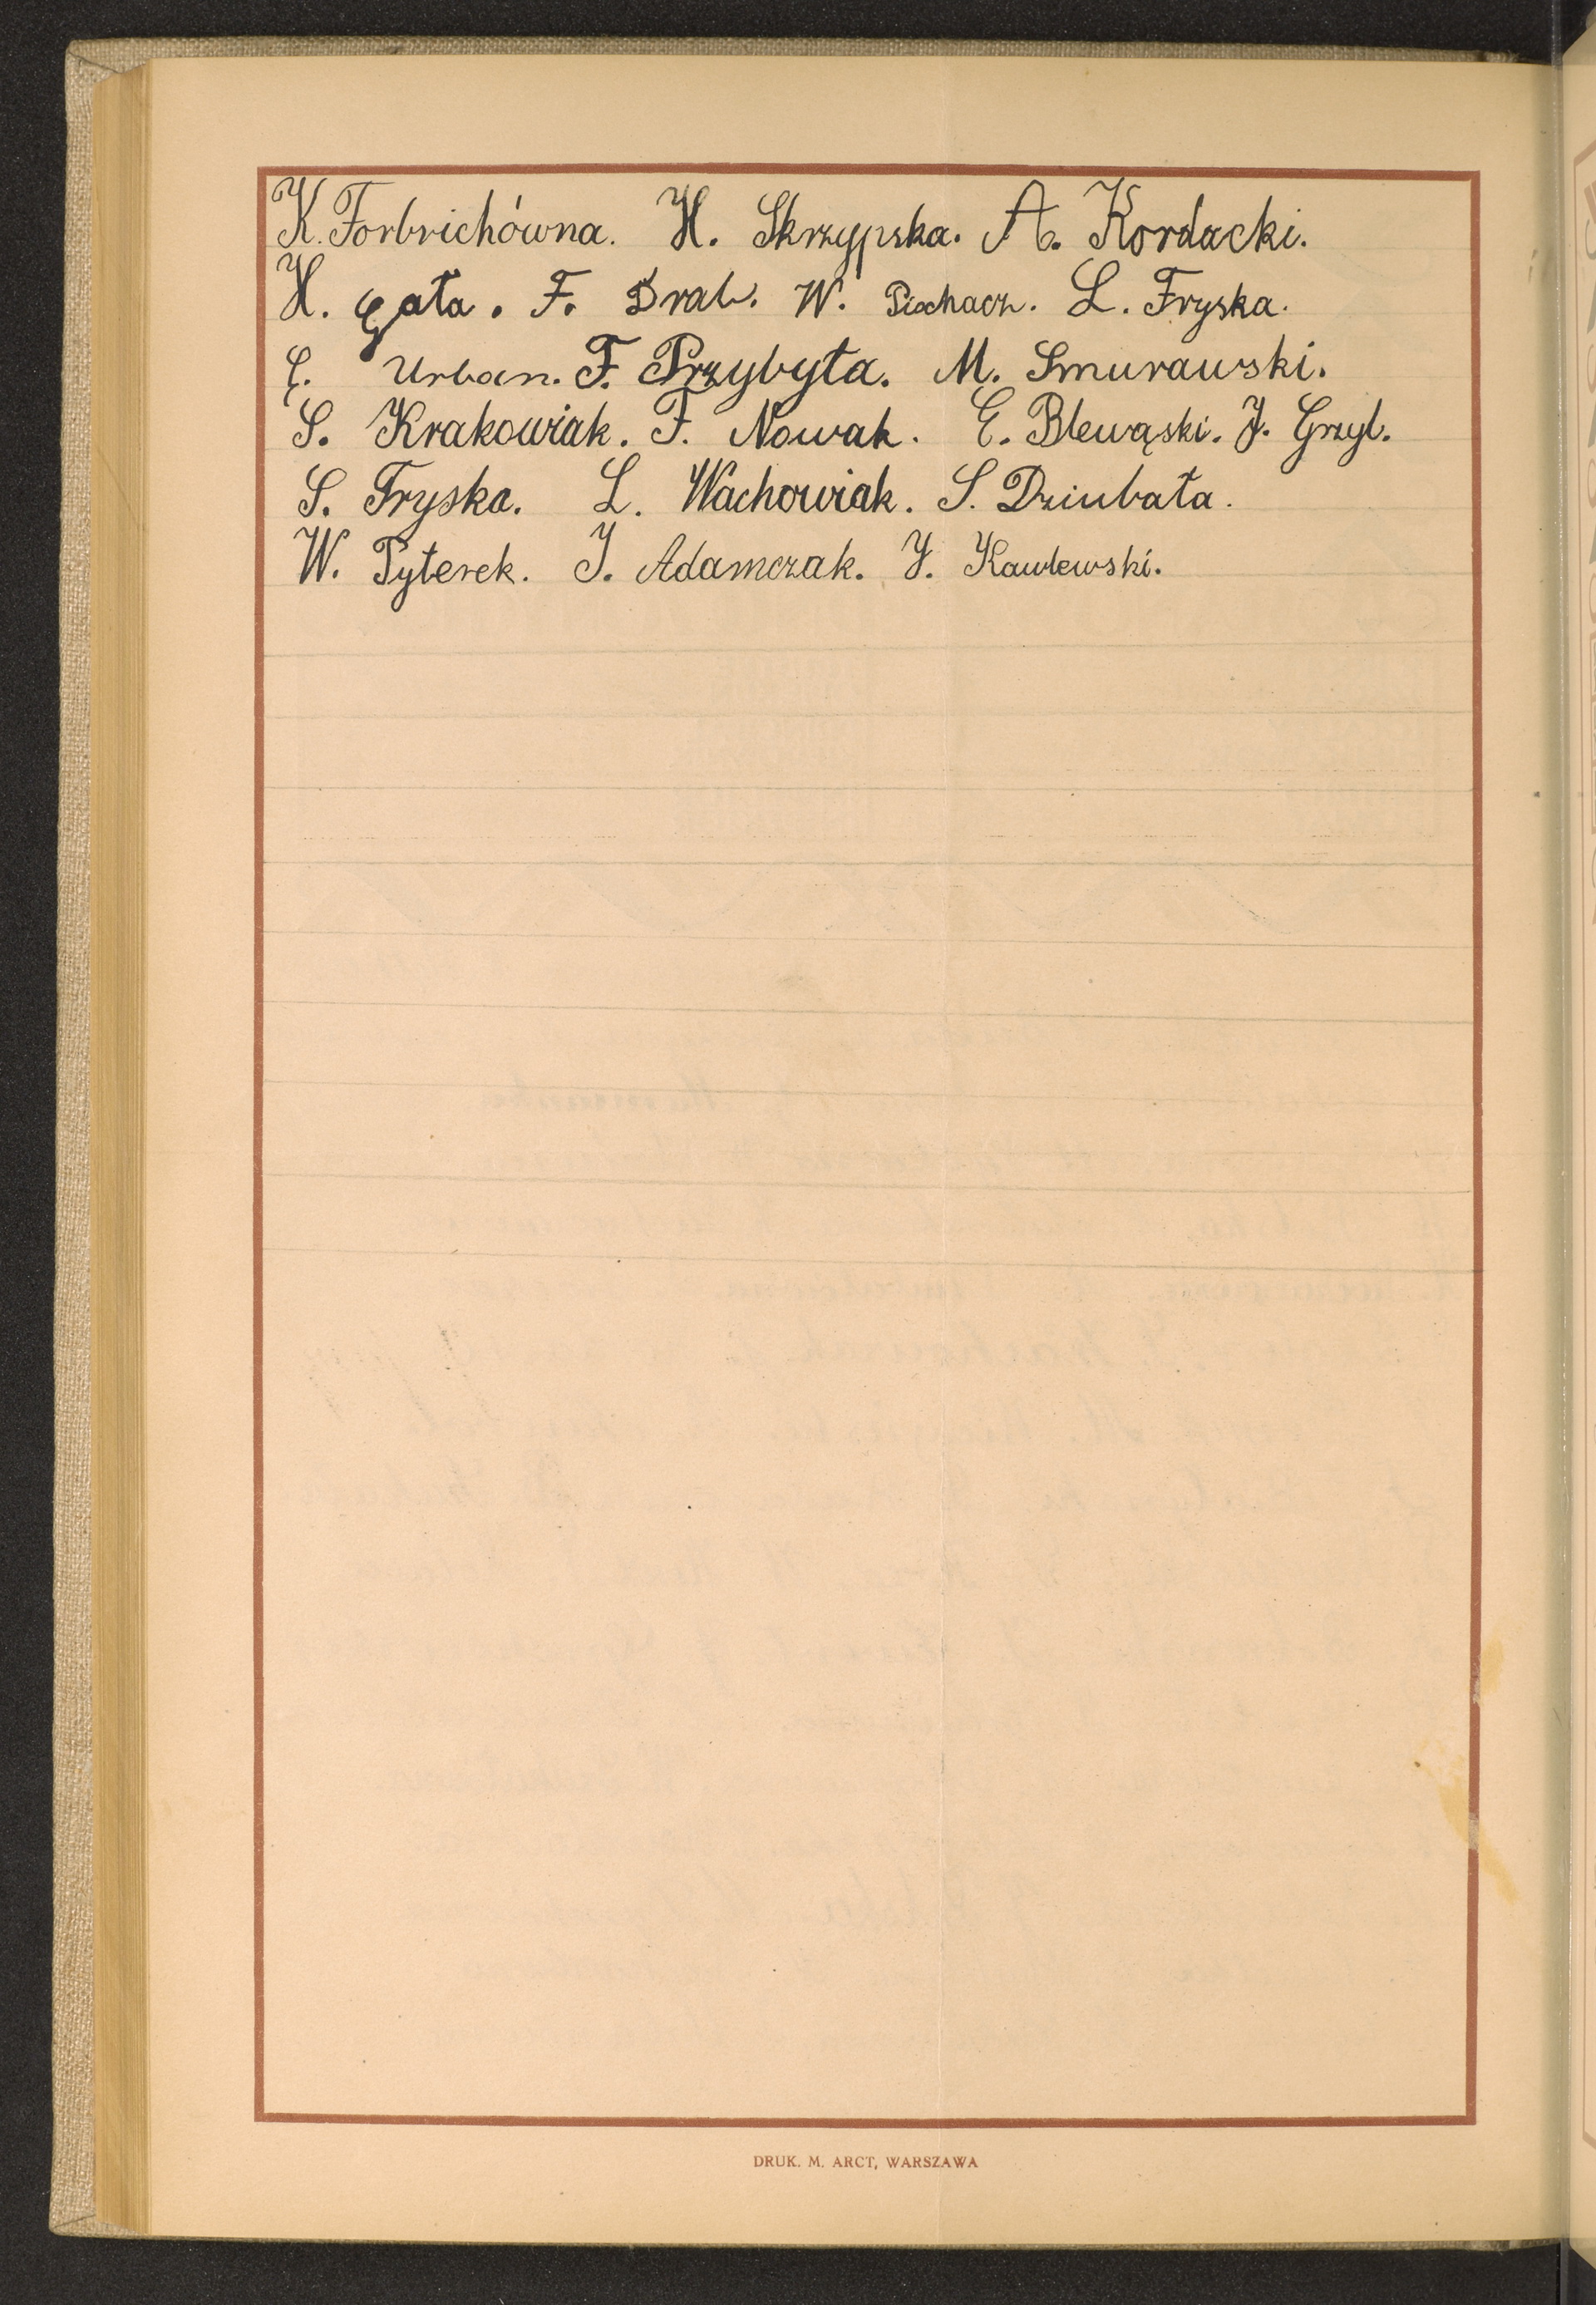 K. Forbrichówna. H. Skrzypska. A. Kordacki.
H. Gała. F. Drab. W. L. Fryska.
Urban. F. Przybyła. M. Smurawski.
S. Krakowiak. F. Nowak. E. Blewąski. J. Grzyb.
S. Fryska. L. Wachowiak. S. Dziubała.
W. Pyterek. J. Adamczak. J. Kawlewski.
DRUK. M. ARCT, WARSZAWA